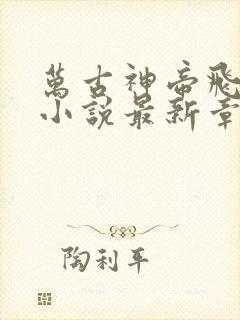 萬古神帝飛
小說最新章
陶利平